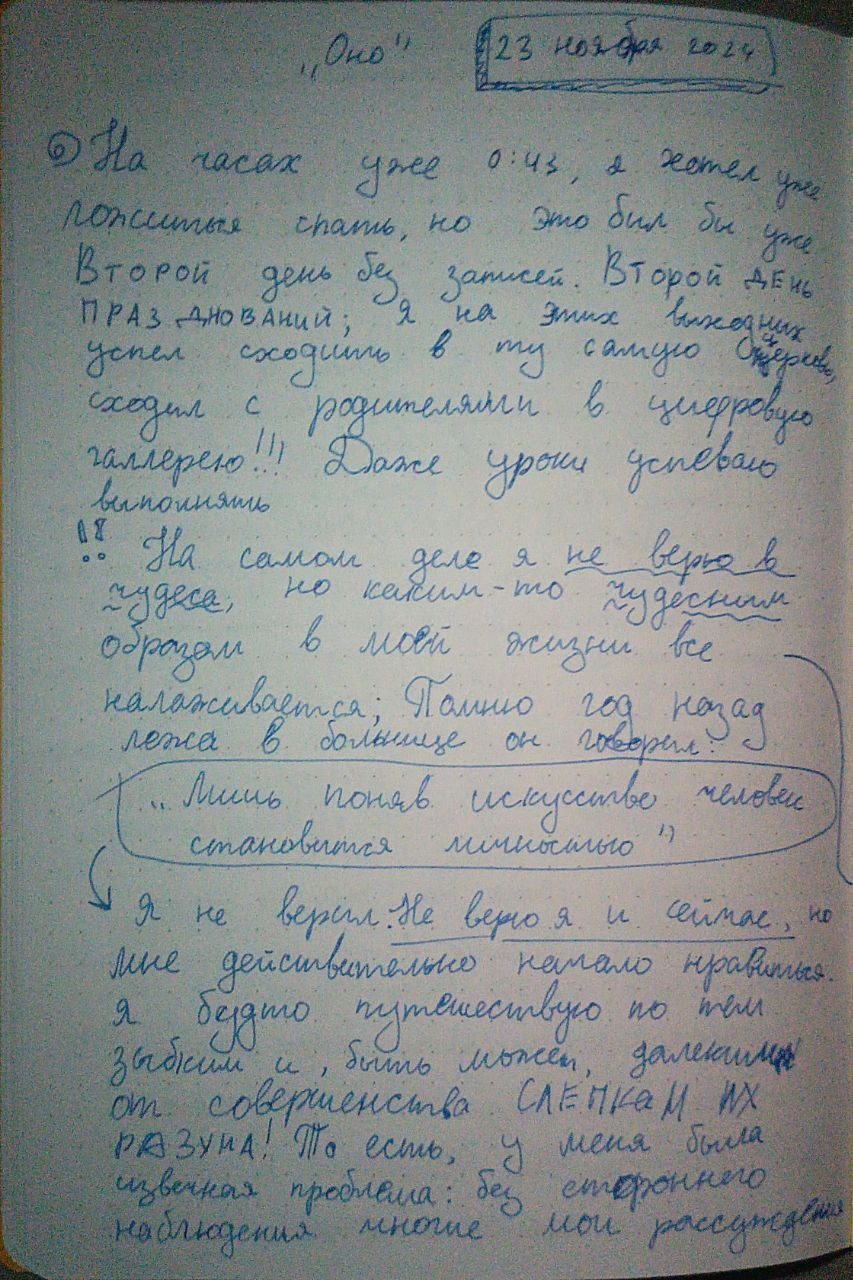 „Оно"
23 ноября 2024
6) На часах уже 0:43, я хотел уже
ложиться спать, но это был бы уже
ВТОРОЙ день без записей. ВТОРОЙ ДЕНЬ
ПРАЗДНОВАНИЙ; Я на этих выходных
успел сходить в ту самую церковь,
сходил с родителями в цифровую
галлерею!!! Даже уроки успеваю
выполнять
!!
На самом деле я не верю в
чудеса, но каким-то чудесным
образом в моей жизни все
налаживается; Помню год назад
лежа в больнице он говорил:
„Лишь поняв искусство человек
становится личностью"
Я не верил. Не верю я и сейчас, но
мне действительно начало нравиться.
Я будто путешествую по тем
зыбким и, быть может, далеким
от совершенства СЛЕПКАМ ИХ
РАЗУМА! То есть, у меня была
извечная проблема: без стороннего
наблюдения многие мои рассуждения